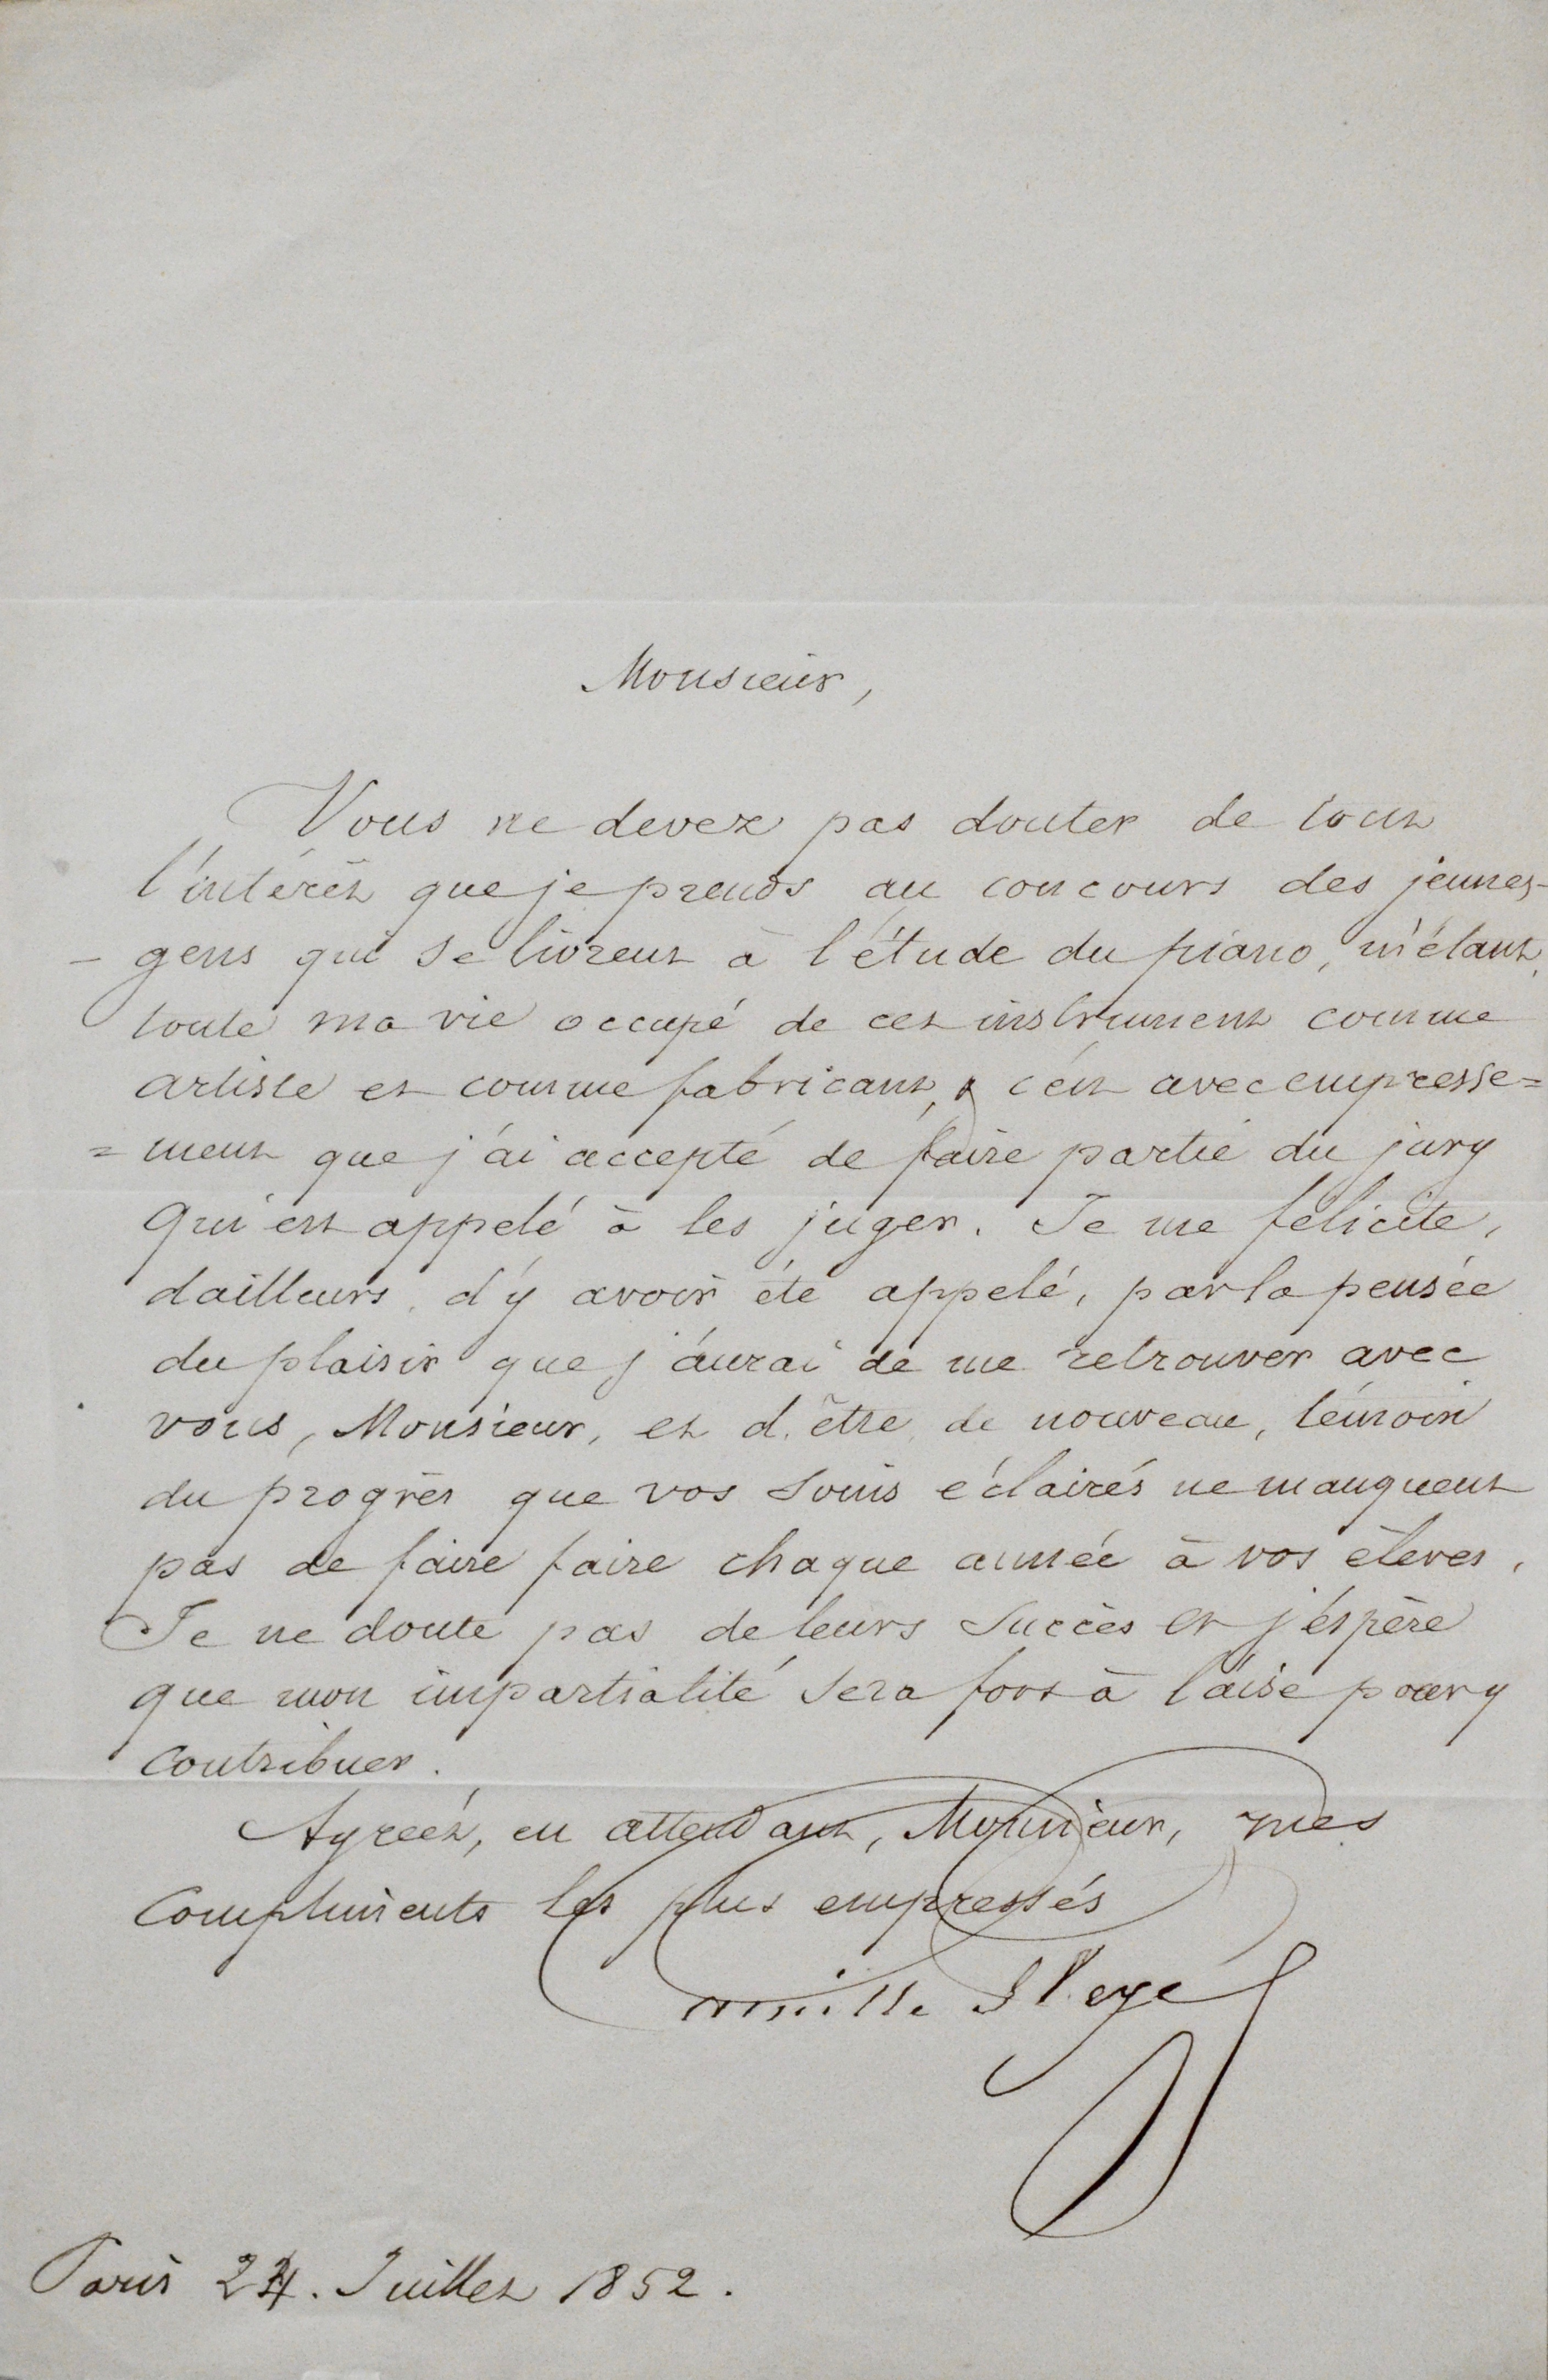 Monsieur,
Vous ne devez pas douter de tout
l'intérêt que je prends au concours des jeunes-
- gens qui se livrent à l'étude du piano, m'étant,
toute ma vie occupé de cet instrument comme
artiste et comme fabricant, & c'est avec empresse=
= ment que j'ai accepté de faire partie du jury
qui est appelé à les juger. Je me félicite,
d'ailleurs, d'y avoir été appelé, par la pensée
du plaisir que j'aurai de me retrouver avec
vous, Monsieur, et d'être, de nouveau, témoin
du progrès que vos soins éclairés ne manquent
pas de faire faire chaque année à vos élèves.
Je ne doute pas de leurs succès et j'espère
que mon impartialité sera fort à l'aise pour y
contribuer.
Agréez, en attendant, Monsieur, mes
compliments les plus empressés
Camille Pleyel
Paris 24. Juillet 1852.